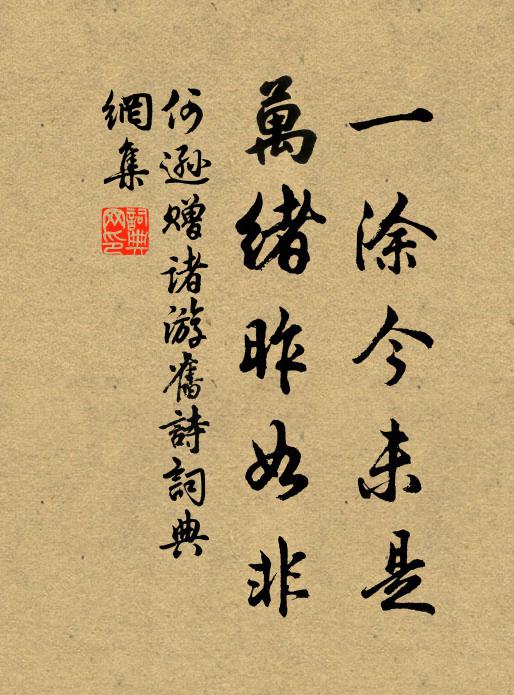 一涂今未是
萬緒昨如非
何遜贈諸游舊詩詞典
網集
詞典网印